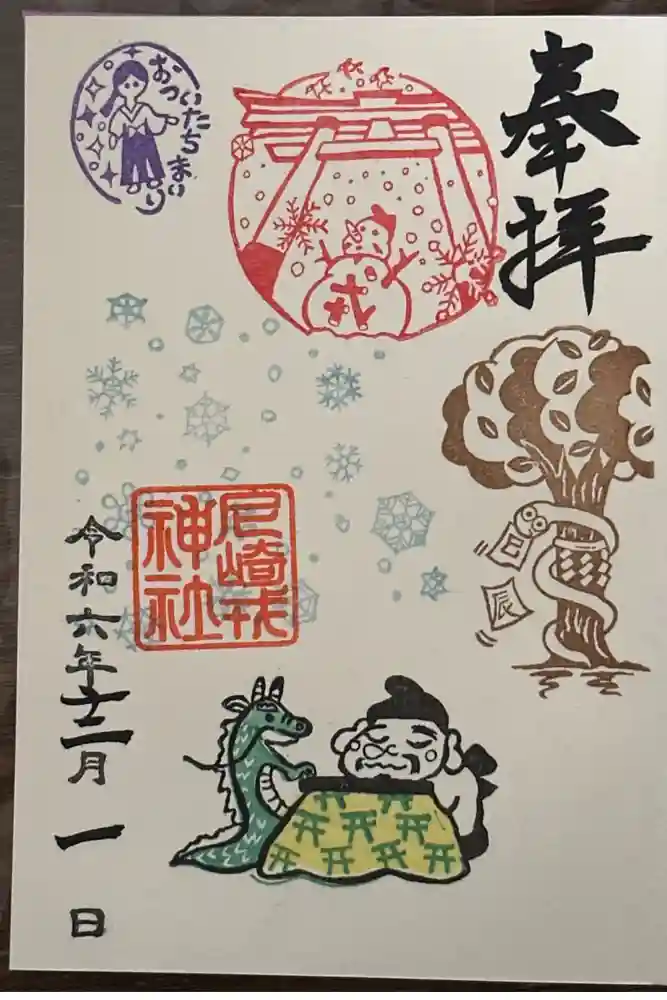 奉拝
おついたちまいり
戎
辰
尼崎戎
神社
令和六年十二月一日